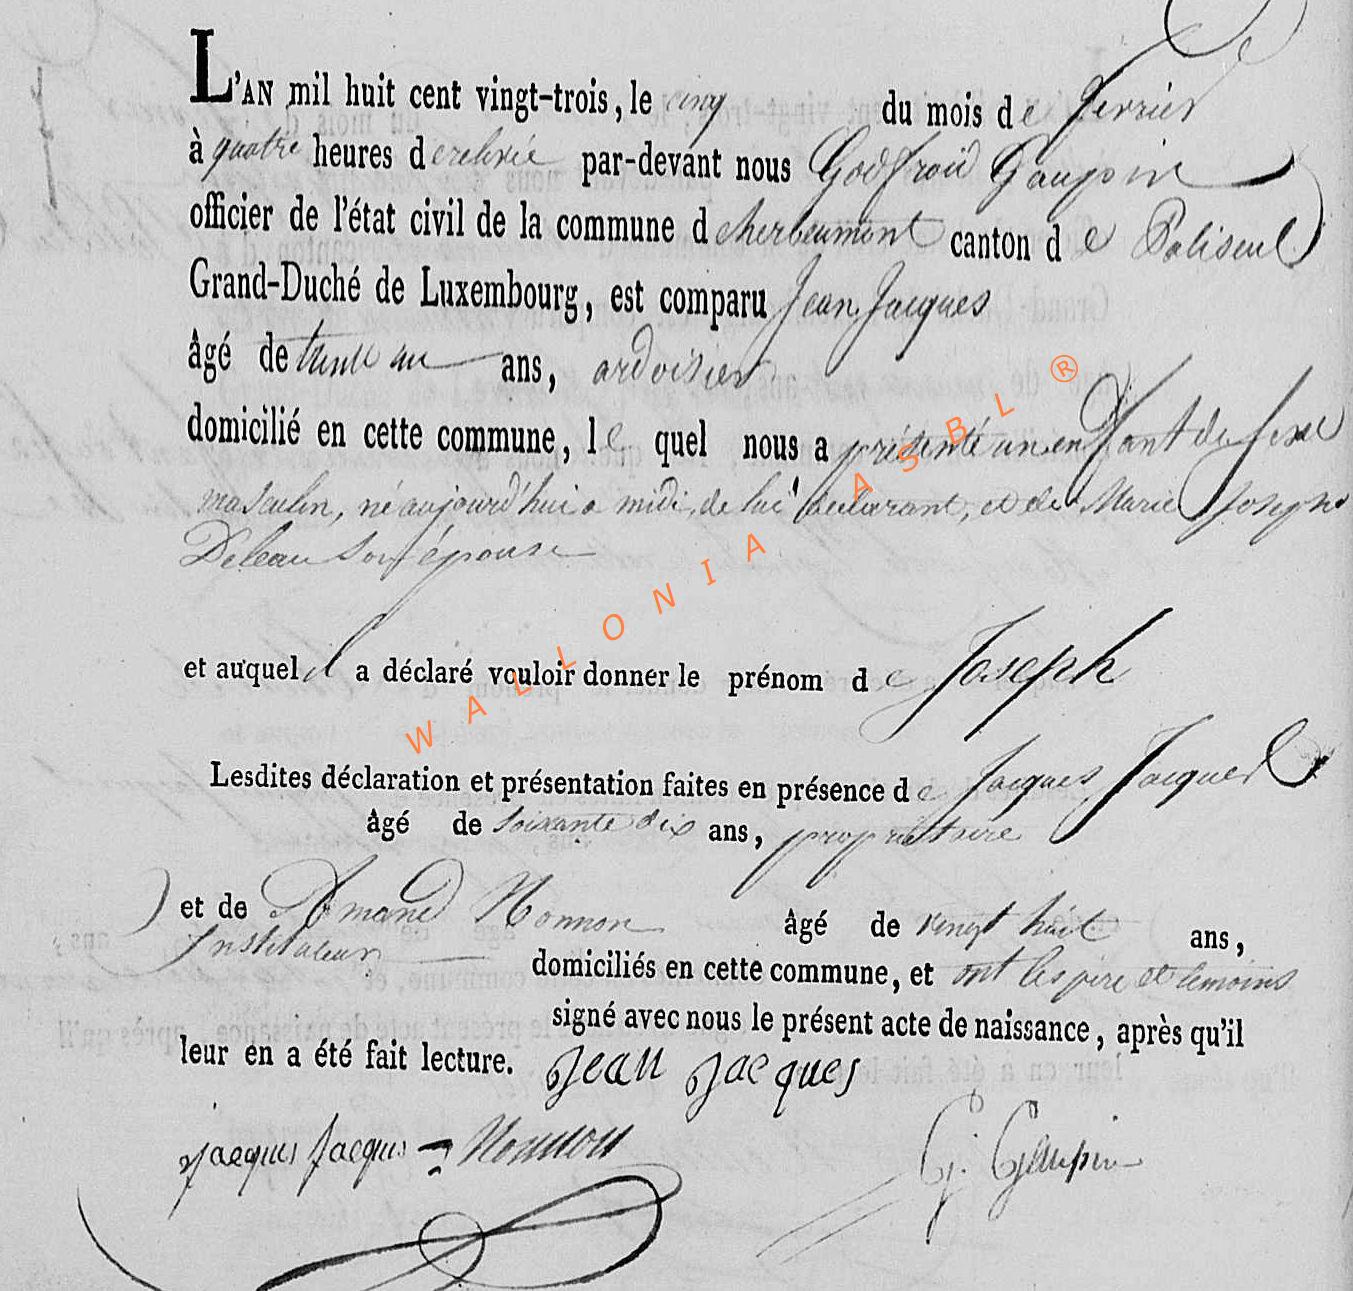 L'AN mil huit cent vingt-trois, le cinq du mois de fevrier
à quatre heures de relevée par-devant nous Godfroid Gaupin
officier de l'état civil de la commune d'herbeumont canton de Paliseul
Grand-Duché de Luxembourg, est comparu Jean Jacques
âgé de trente un ans, ardoisier
domicilié en cette commune, le quel nous a présenté un enfant du sexe
masculin, né aujourd'hui a midi, de lui declarant, et de Marie Joseph
Deleau son épouse
et auquel il a déclaré vouloir donner le prénom de Joseph
Lesdites déclaration et présentation faites en présence de Jacques Jacques
âgé de soixante dix ans, propriétaire
et de Amand Nonnon âgé de vingt huit ans,
Instituteur domiciliés en cette commune, et ont les père et temoins
signé avec nous le présent acte de naissance, après qu'il
leur en a été fait lecture. Jean Jacques
Jacques Jacques Nonnon G. Gaupin
WALLONIA ASBL ®